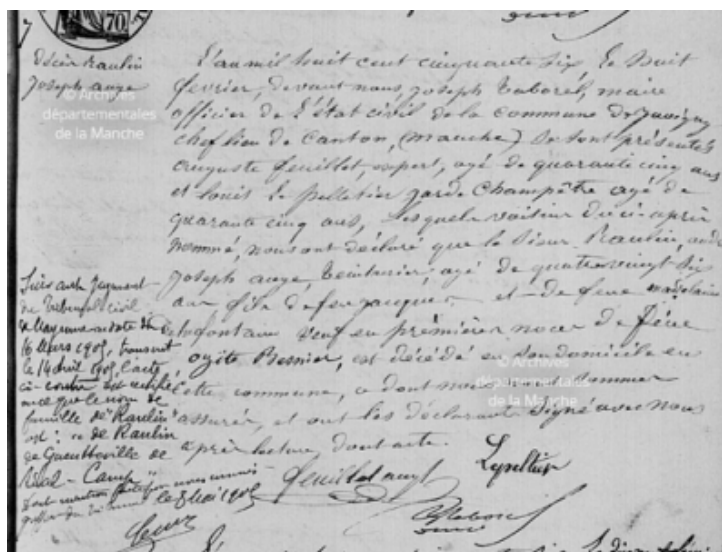 70
7
Décès Raulin
Joseph ange
© Archives
départementales
de la Manche
L'an mil huit cent cinquante six le huit
février, devant nous, Joseph Taborel, maire
officier de l'état civil de la commune de Juvigny
chef lieu de Canton, (Manche) se sont présentés
Auguste feuillet, expert, agé de quarante cinq ans
et louis le pelletier garde Champêtre agé de
quarante cinq ans, lesquels voisins du ci-après
nommé, nous ont déclaré que le Sieur Raulin,
Joseph ange, teinturier, agé de quatre vingt six
ans fils de feu jacques, et de feue
veuf en premières noces de feue
Besnier, est décédé en son domicile en
cette commune, ce dont nous nous sommes
assuré, et ont les déclarants signé avec nous
après lecture, dont acte.
Suivant Jugement
du Tribunal civil
de Mayenne en date du
16 Mars 1905, transcrit
le 14 Avril 1905, l'acte
ci-contre est rectifié
en ce que le nom de
famille de "Raulin"
est: "de Raulin
de Gueutteville de
Réal-Camp"
le 8 Mai 1905
© Archives
départementales
de la Manche
feuillet
Lepeltier